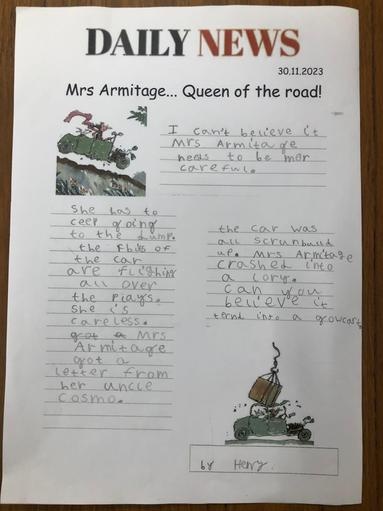 DAILY NEWS
30.11.2023
Mrs Armitage... Queen of the road!
I can't believe it
Mrs Armitage
needs to be mor
careful.
She has to
ceep going
to the dump.
the of
the car
are
all over
the
She is
careless.
got a Mrs
Armitage
got a
letter from
her uncle
cosmo.
the car was
all
up. Mrs Armitage
crashed into
a lory.
can you
believe it
ternd into a
by Henry.